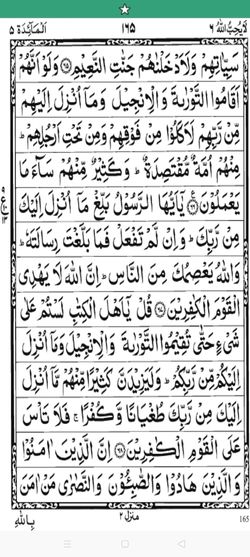 لَا يُحِبُّ اللهُ ٦ ١٦٥ اَلْمَآئِدَة ٥
سَيِّاٰتِهِمْ وَلَاَدْخَلْنٰهُمْ جَنّٰتِ النَّعِيْمِ ﴿٦٥﴾ وَلَوْ اَنَّهُمْ
اَقَامُوا التَّوْرٰىةَ وَالْاِنْجِيْلَ وَمَآ اُنْزِلَ اِلَيْهِمْ
مِّنْ رَّبِّهِمْ لَاَكَلُوْا مِنْ فَوْقِهِمْ وَمِنْ تَحْتِ اَرْجُلِهِمْ ؕ
مِنْهُمْ اُمَّةٌ مُّقْتَصِدَةٌ ؕ وَكَثِيْرٌ مِّنْهُمْ سَآءَ مَا
يَعْمَلُوْنَ ﴿٦٦﴾ يٰٓاَيُّهَا الرَّسُوْلُ بَلِّغْ مَآ اُنْزِلَ اِلَيْكَ
مِنْ رَّبِّكَ ؕ وَاِنْ لَّمْ تَفْعَلْ فَمَا بَلَّغْتَ رِسَالَتَهٗ ؕ
وَاللهُ يَعْصِمُكَ مِنَ النَّاسِ ؕ اِنَّ اللهَ لَا يَهْدِى
الْقَوْمَ الْكٰفِرِيْنَ ﴿٦٧﴾ قُلْ يٰٓاَهْلَ الْكِتٰبِ لَسْتُمْ عَلٰى
شَىْءٍ حَتّٰى تُقِيْمُوا التَّوْرٰىةَ وَالْاِنْجِيْلَ وَمَآ اُنْزِلَ
اِلَيْكُمْ مِّنْ رَّبِّكُمْ ؕ وَلَيَزِيْدَنَّ كَثِيْرًا مِّنْهُمْ مَّآ اُنْزِلَ
اِلَيْكَ مِنْ رَّبِّكَ طُغْيَانًا وَّكُفْرًا ۚ فَلَا تَاْسَ
عَلَى الْقَوْمِ الْكٰفِرِيْنَ ﴿٦٨﴾ اِنَّ الَّذِيْنَ اٰمَنُوْا
وَالَّذِيْنَ هَادُوْا وَالصّٰبِـُٔوْنَ وَالنَّصٰرٰى مَنْ اٰمَنَ
منزل ٢
بِاللهِ
165